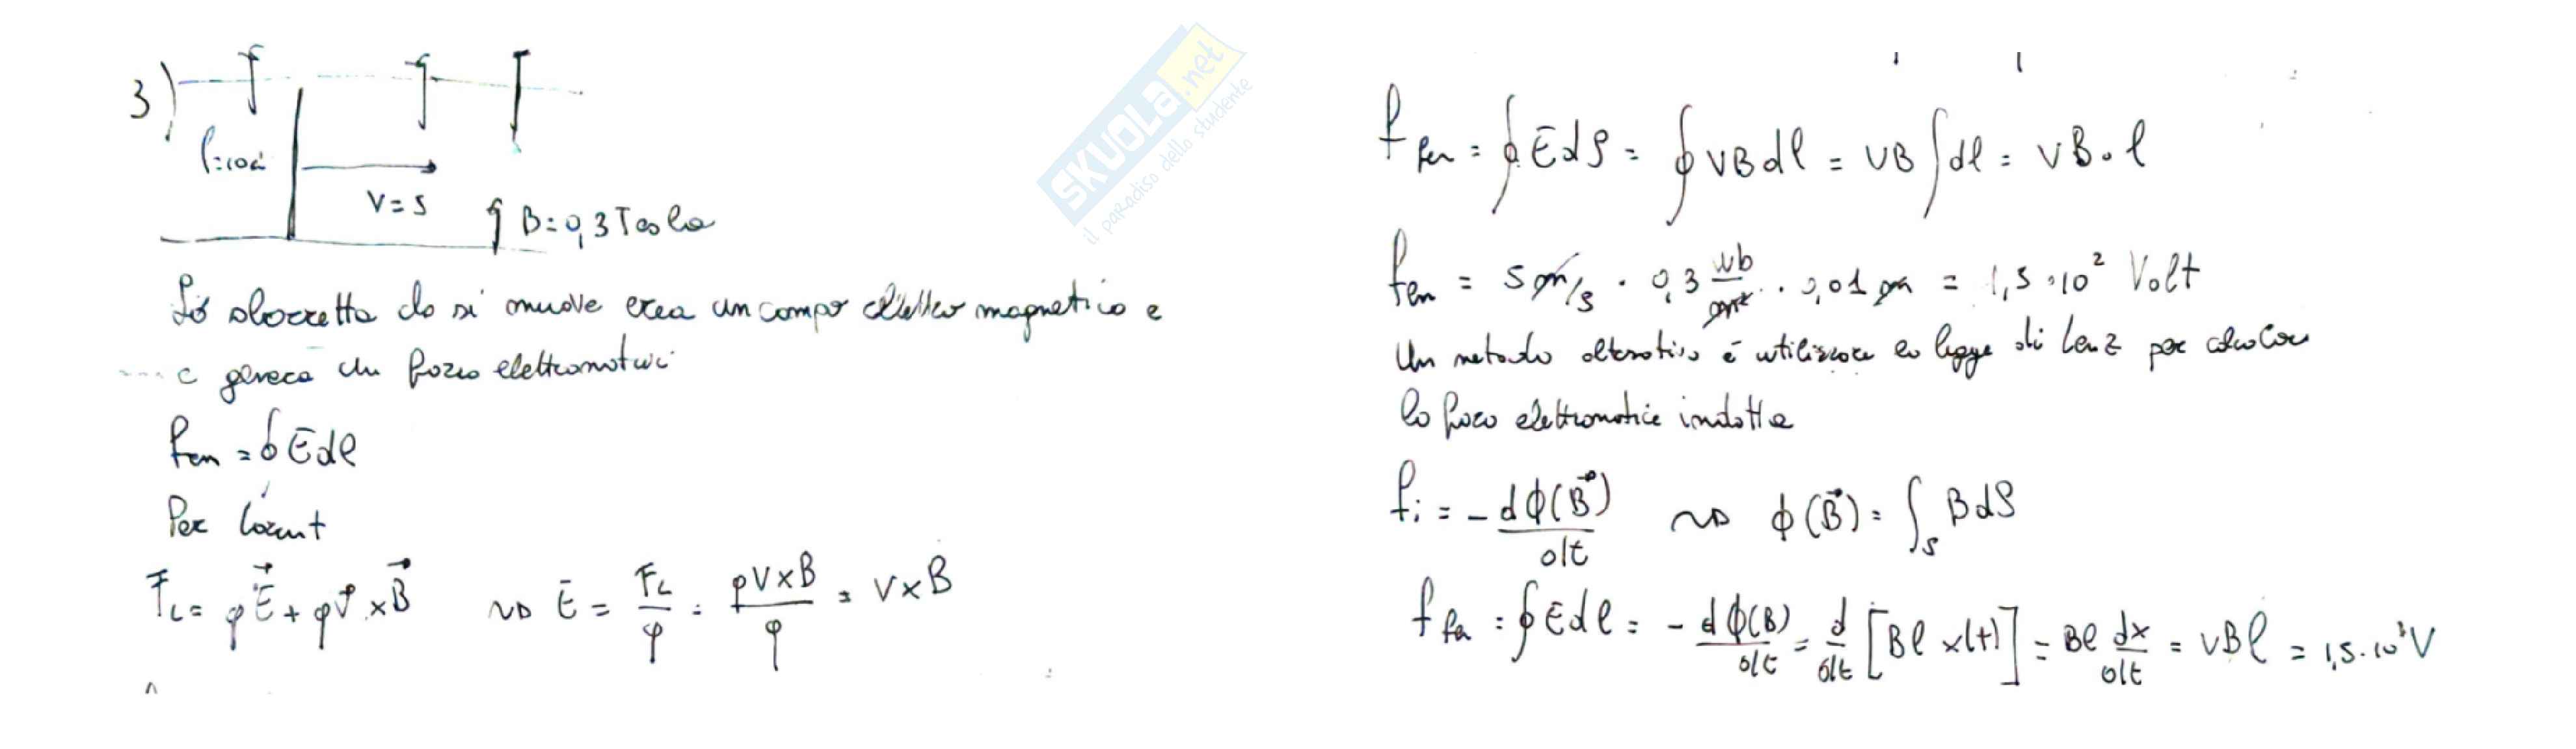 3)
l=10cm
V=5
B=0,3 Tesla
La sbarretta che si muove crea un campo elettro magnetico e
e genera una forza elettromotrice
fem = ∮Ēdl
Per Lorent
F_L = qE⃗ + qv⃗ × B⃗ ~> Ē = F_L/q = qV×B/q = V×B
SKUOLA.net
il paradiso dello studente
f_em = ∮ĒdS = ∮VBdl = VB∫dl = VB·l
f_em = 5 m/s · 0,3 Wb/m² · 0,01 m = 1,5·10² Volt
Un metodo alternativo è utilizzare la legge di Lenz per calcolare
la forza elettromotrice indotta
f_i = -dϕ(B⃗)/dt ~> ϕ(B⃗) = ∫_S BdS
f_em = ∮Ēdl = -dϕ(B)/dt = d/dt [Bl x(t)] = Bl dx/dt = VBl = 1,5·10 V